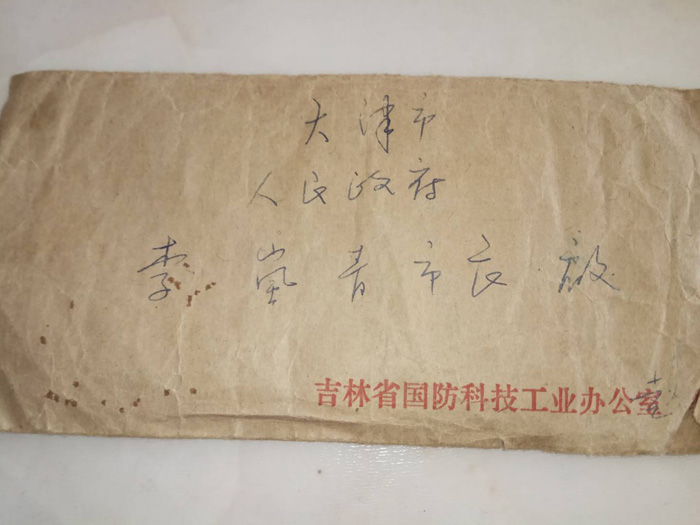 天津市
人民政府
李岚青市长 启
吉林省国防科技工业办公室